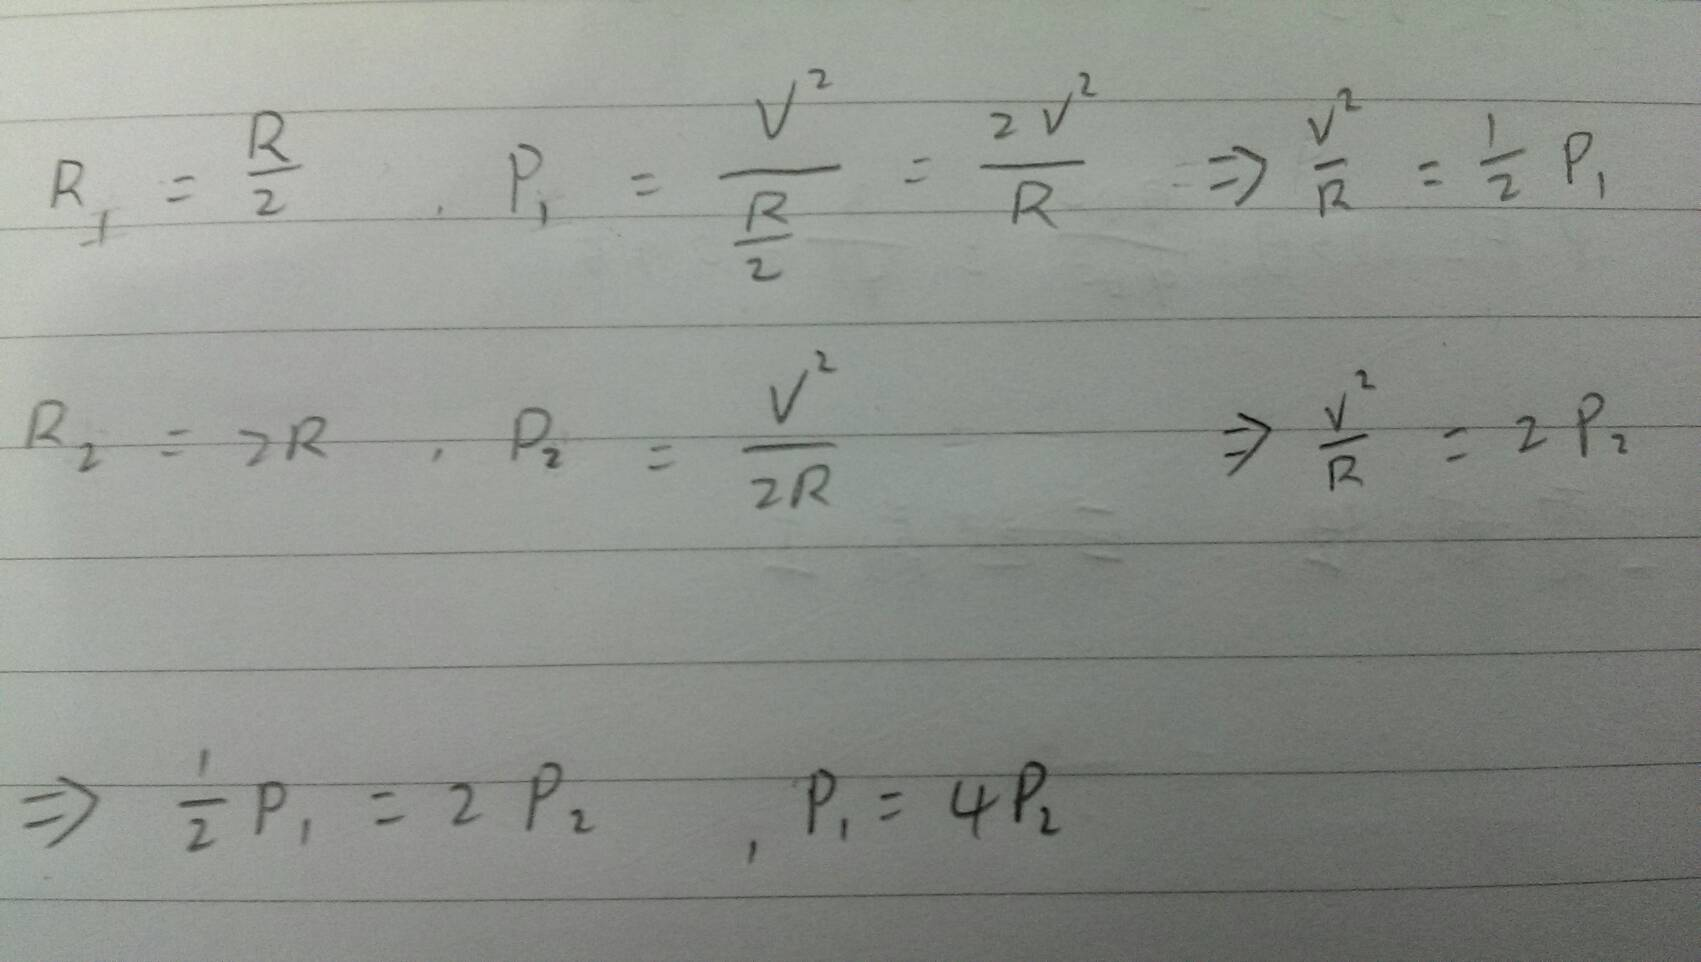 R₁ = R/2 , P₁ = V²/(R/2) = 2V²/R ⇒ V²/R = 1/2 P₁
R₂ = 2R , P₂ = V²/2R ⇒ V²/R = 2P₂
⇒ 1/2 P₁ = 2P₂ , P₁ = 4P₂